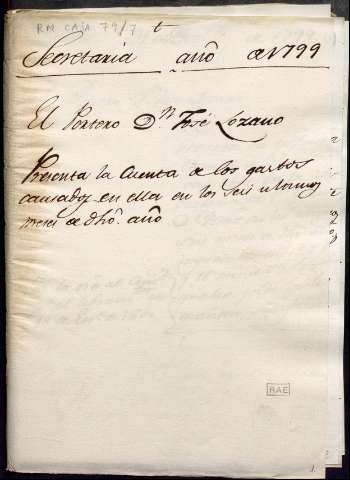 RM CAJA 79/7
t
Secretaria año de 1799
El Portero Dn. José Lozano
Presenta la Cuenta de los gastos
causados en ella en los seis ultimos
meses de dhô. año
RAE
1.